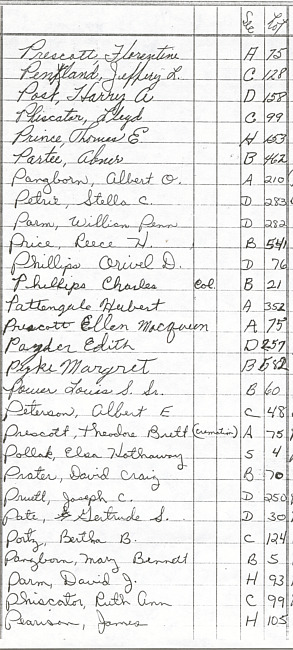 Sec Lot
Prescott, Florentine A 75
Pentland, Jeffery L. C 128
Post, Harry A D 158
Phiscator, Lloyd C 99
Prince, Thomas E. H 153
Partee, Abner B 462
Pangborn, Albert O. A 210
Petrie, Stella C. D 283
Parm, William Penn D 282
Price, Reece H. B 541
Phillips Orivel D. D 76
Phillips Charles Col. B 21
Pattengale Hubert A 352
Prescott Ellen Macqueen A 75
Payder Edith D 257
Pyke Margret B 582
Power Louis S. Sr. B 60
Peterson, Albert E C 48
Prescott, Theodore Brett (cremation) A 75
Pollak, Elsa Hathaway S 4
Prater, David Craig B 70
Pruett, Joseph C. D 250
Pate, Gertrude S. D 30
Portz, Bertha B. C 124
Pangborn, Mary Bennett B 5
Parm, David J. H 93
Phiscator, Ruth Ann C 99
Pearson, James H 105